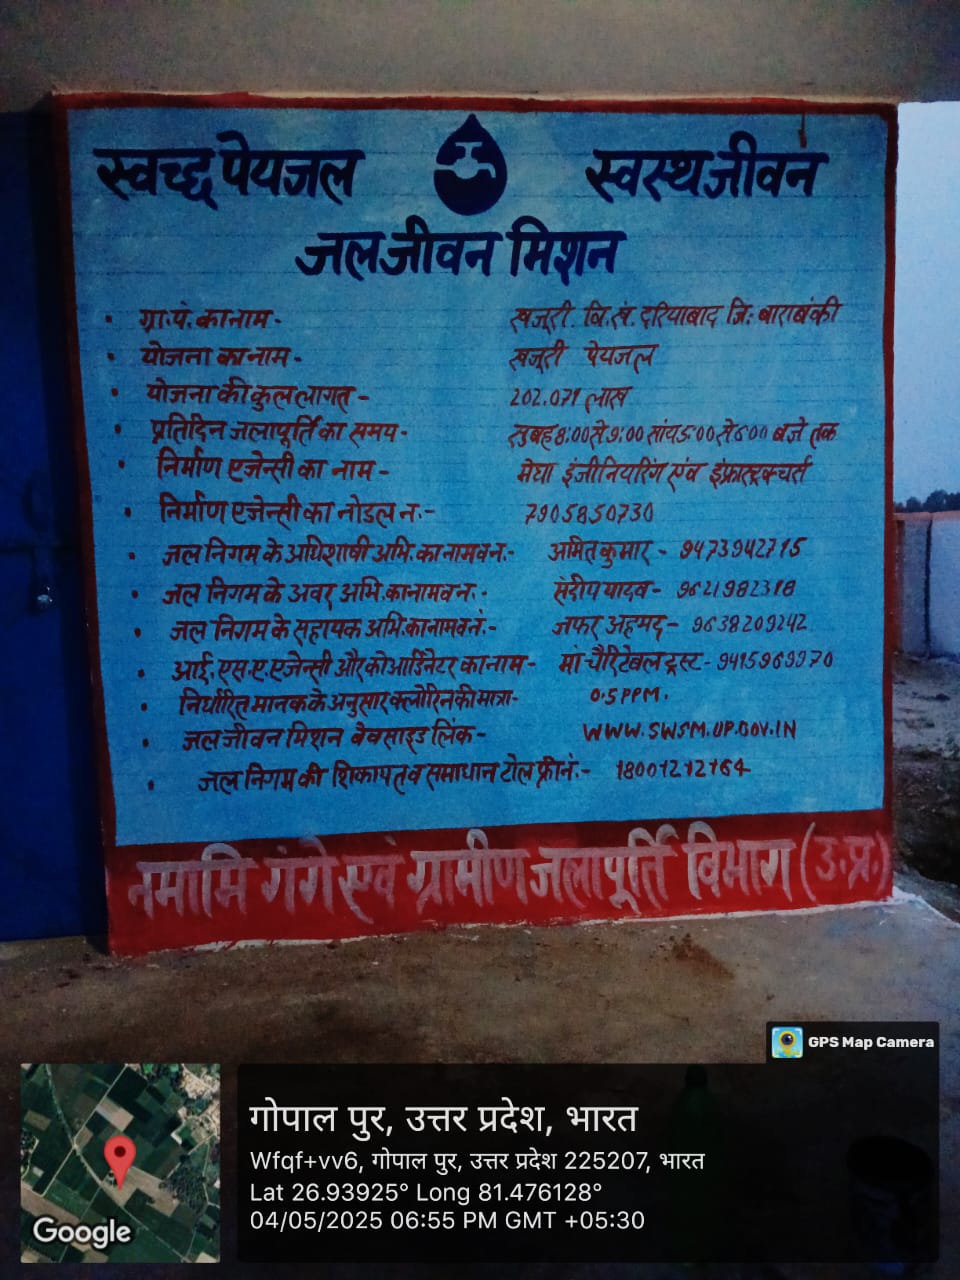 स्वच्छ पेयजल स्वस्थ जीवन
जल जीवन मिशन
ग्रा.पं. का नाम- खजूरी. वि.खं. दरियाबाद जि: बाराबंकी
योजना का नाम- खजूरी पेयजल
योजना की कुल लागत- 202.071 लाख
प्रतिदिन जलापूर्ति का समय- सुबह 8:00 से 9:00 सांय 5:00 से 6:00 बजे तक
निर्माण एजेन्सी का नाम- मेघा इंजीनियरिंग एंव इंफ्रास्ट्रक्चर्स
निर्माण एजेन्सी का नोडल न.- 7905850730
जल निगम के अधिशाषी अभि. का नाम व न.- अमित कुमार- 9473942715
जल निगम के अवर अभि. का नाम व न.- संदीप यादव- 9621982318
जल निगम के सहायक अभि. का नाम व नं.- जफर अहमद- 9638209242
आई. एस. ए. एजेन्सी और कोआर्डिनेटर का नाम- मां चैरिटेबल ट्रस्ट- 9415969970
निर्धारित मानक के अनुसार क्लोरिन की मात्रा- 0.5 PPM.
जल जीवन मिशन वेवसाइड लिंक- WWW.SWSM.UP.GOV.IN
जल निगम की शिकायत व समाधान टोल फ्री नं.- 18001212164
नमामि गंगे एवं ग्रामीण जलापूर्ति विभाग (उ.प्र.)
GPS Map Camera
गोपाल पुर, उत्तर प्रदेश, भारत
Wfqf+vv6, गोपाल पुर, उत्तर प्रदेश 225207, भारत
Lat 26.93925° Long 81.476128°
04/05/2025 06:55 PM GMT +05:30
Google